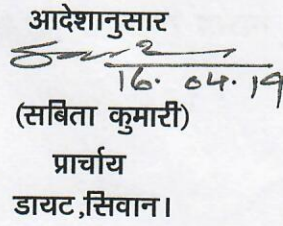 आदेशानुसार
16. 04. 19
(सबिता कुमारी)
प्रार्चाय
डायट,सिवान।